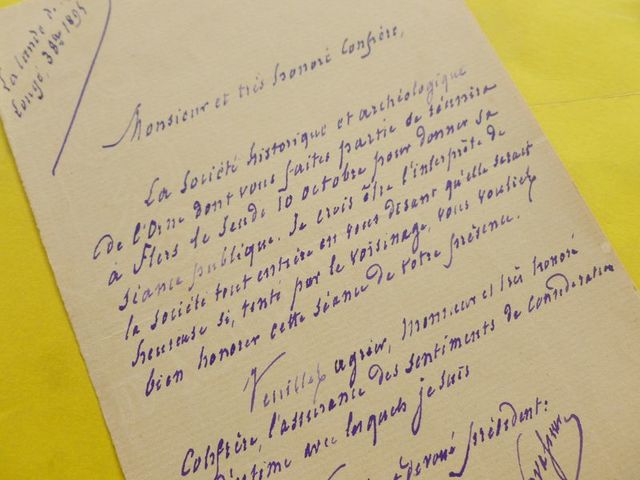 La Lande de
Longé, 3 8bre 1895
Monsieur et très honoré Confrère,
La Société historique et archéologique
de l'Orne dont vous faites partie se réunira
à Flers le Jeudi 10 octobre pour donner sa
séance publique. Je crois être l'interprète de
la société tout entière en vous disant qu'elle serait
heureuse si, tenté par le voisinage, vous vouliez
bien honorer cette séance de votre présence.
Veuillez agréer, Monsieur et très honoré
Confrère, l'assurance des sentiments de considération
d'estime avec lesquels je suis
dévoué président.